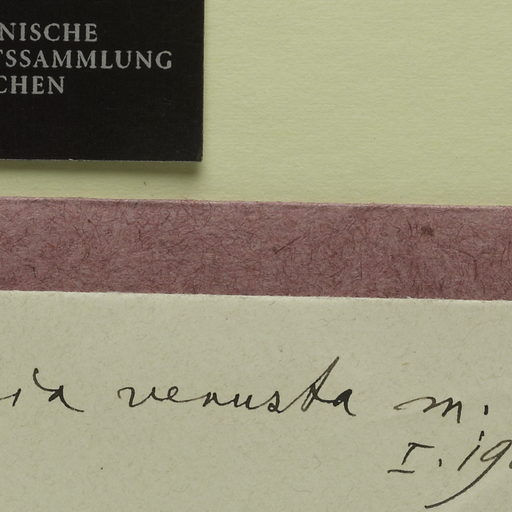 NISCHE
TSSAMMLUNG
CHEN
ia venusta m.
I. 19